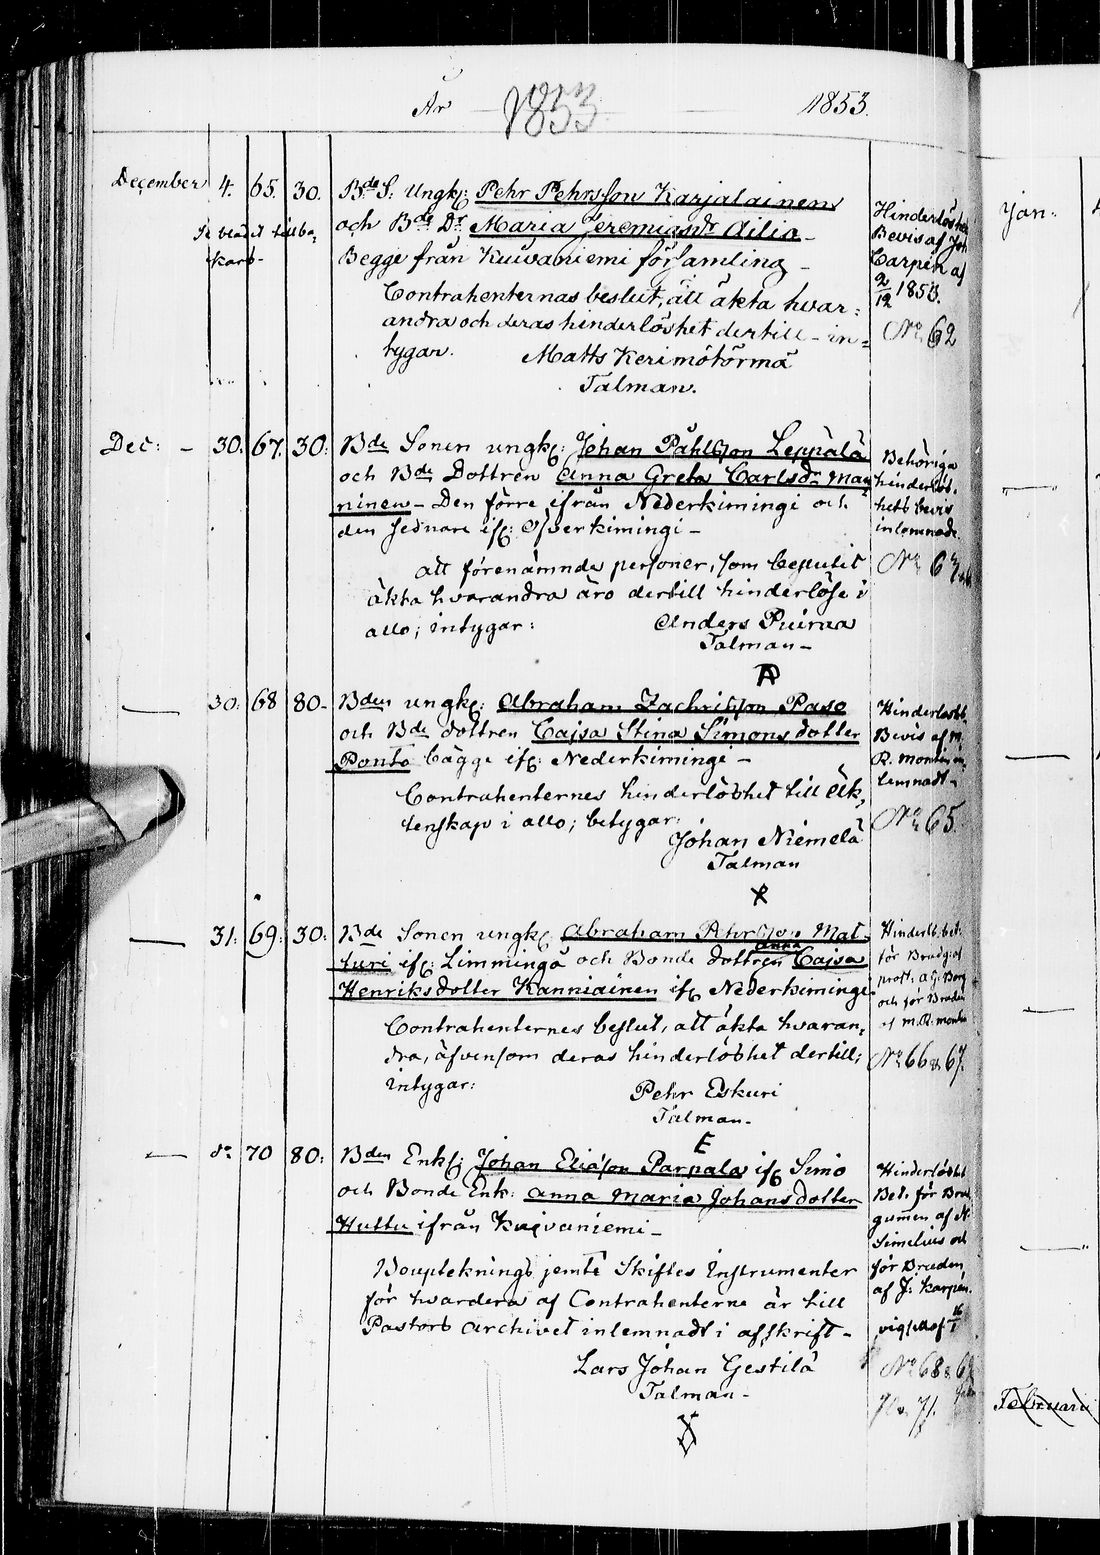 År 1853 1853.
December 4. 65. 30. Bde S. Ungk: Pehr Pehrsson Karjalainen
och Bde Dr Maria Jeremiasdr Ailio
Begge från Kuivaniemi församling –
Contrahenternas beslut, att äkta hvar=
andra och deras hinderlöshet dertill – in=
tygar. Matts Kerimötörmä
Talman.
Hinderlöshets
Bevis af Joh
Carpén af
2/12 1853.
No 62
Dec: – 30. 67. 30: Bde Sonen ungk: Johan Påhlsson Leppälä
och Bde Dottren Anna Greta Carlsdr Man
ninen – Den förre ifrån Nederkimingi och
den sednare if: Öfverkimingi –
att förenämnde personer, som beslutit
äkta hvarandra äro dertill hinderlöse i
allo; intygar: Anders Puiraa
Talman –
Behöriga
hinderlös-
hets bevis
inlemnade.
No 63
30. 68 80 – Bden ungk: Abraham Zachrisson Paso
och Bde dottren Cajsa Stina Simons dotter
Ponto bägge if: Nederkiminge –
Contrahenternes hinderlöshet till äk,
tenskap i allo; betygar:
Johan Niemelä
Talman
Hinderlösh.
Bevis af M.
R. Montin in
lemnadt –
No 65.
31: 69: 30: Bde Sonen ungk: Abraham Pehrsson Mat-
turi if: Limmingå och Bonde dottren Anna Cajsa
Henriksdotter Kanniainen if: Nederkiminge
Contrahenternes beslut, att äkta hvaran,
dra, äfvensom deras hinderlöshet dertill;
intygar:
Pehr Eskuri
Talman –
Hinderlh. bet:
för Brudg: af
prost. A. G. Borg
och för Bruden
af M. R. Montin
No 66 & 67.
do 70 80: Bden Enkl: Johan Eliasson Parpala if: Simo
och Bonde Enk: Anna Maria Johans dotter
Huttu ifrån Kuivaniemi –
Boupteknings jemte Skiftes Instrumenter
för hvardera af Contrahenterne är till
Pastors Archivet inlemnadt i afskrift –
Lars Johan Gestilä
Talman –
Hinderlöshet
Bet. för Brud
gummen af N.
Simelius och
för Bruden
af J: Karpén.
No 68 & 69
70 & 71.
Jan:
Februari